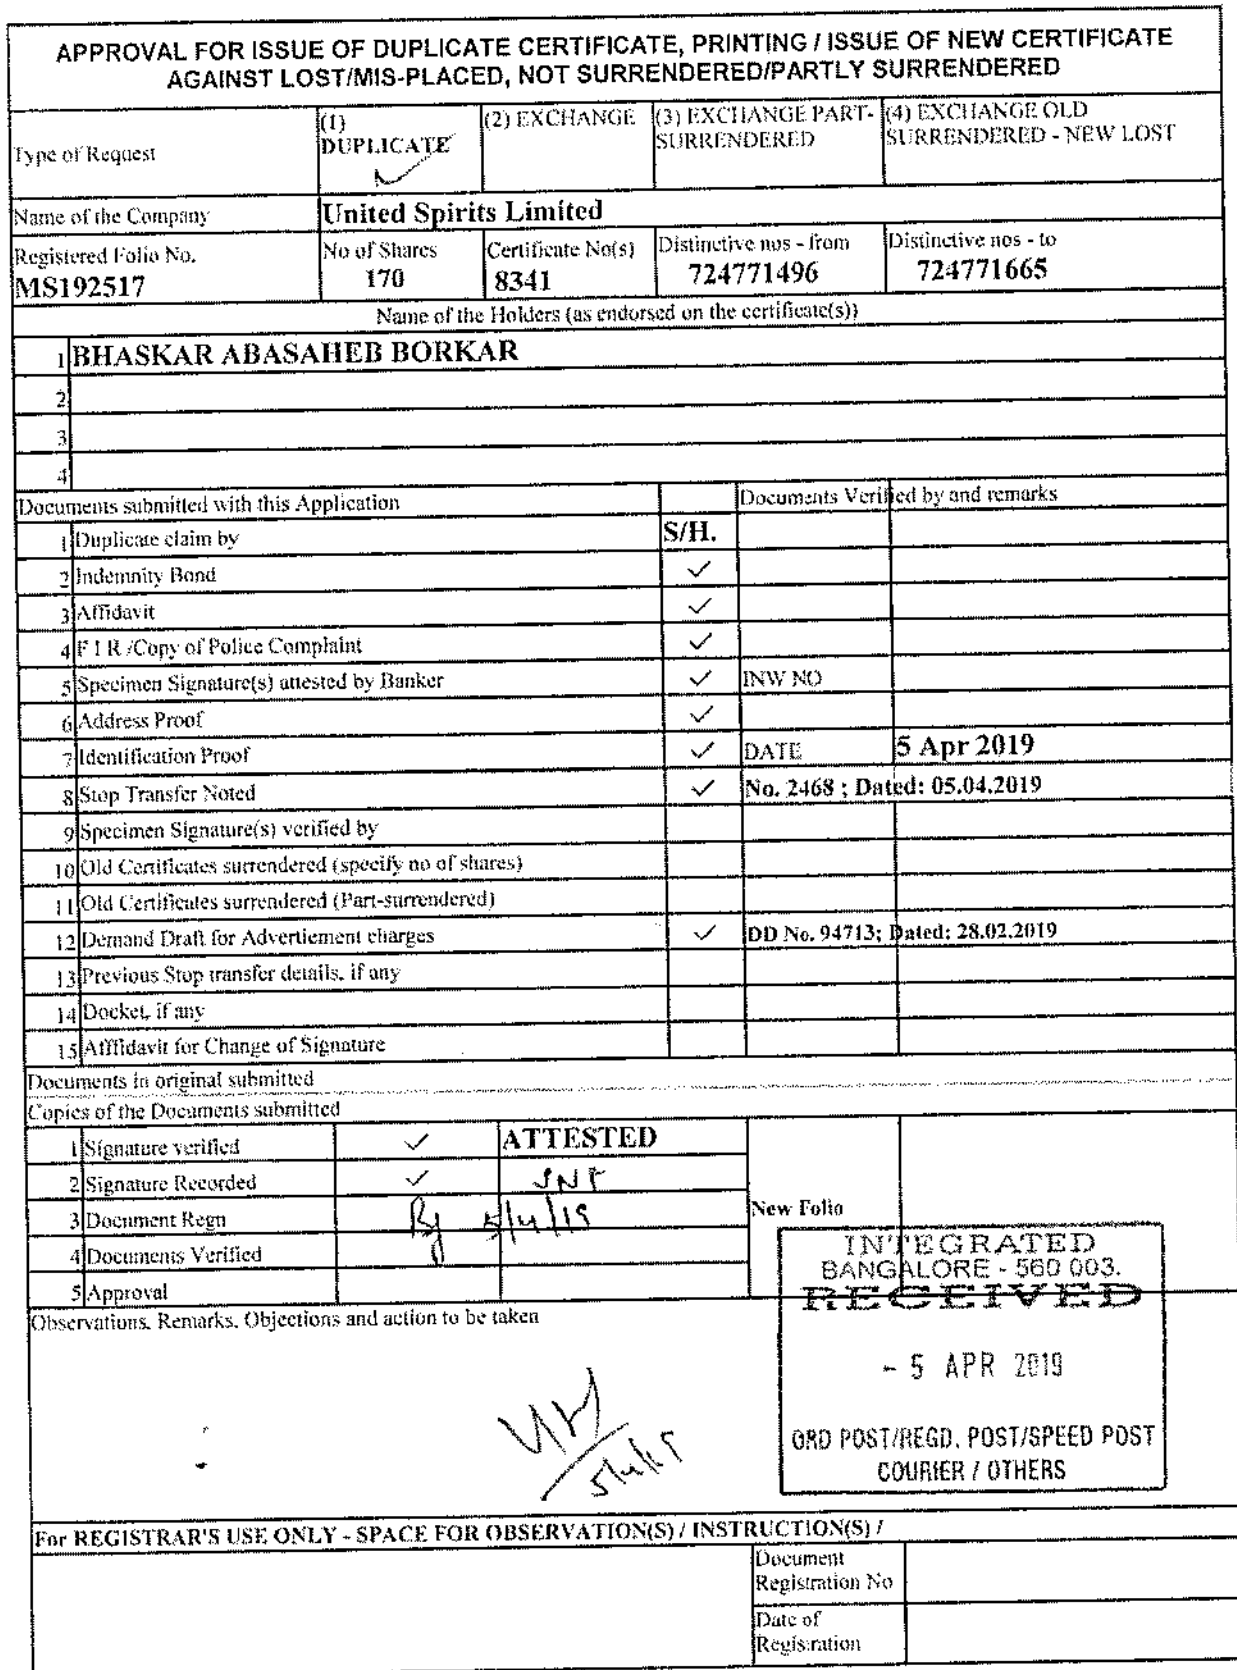 APPROVAL FOR ISSUE OF DUPLICATE CERTIFICATE, PRINTING / ISSUE OF NEW CERTIFICATE
AGAINST LOST/MIS-PLACED, NOT SURRENDERED/PARTLY SURRENDERED
Type of Request
(1)
DUPLICATE
✓
(2) EXCHANGE
(3) EXCHANGE PART-
SURRENDERED
(4) EXCHANGE OLD
SURRENDERED - NEW LOST
Name of the Company United Spirits Limited
Registered Folio No.
MS192517
No of Shares
170
Certificate No(s)
8341
Distinctive nos - from
724771496
Distinctive nos - to
724771665
Name of the Holders (as endorsed on the certificate(s))
1 BHASKAR ABASAHEB BORKAR
2
3
4
Documents submitted with this Application Documents Verified by and remarks
1 Duplicate claim by S/H.
2 Indemnity Bond ✓
3 Affidavit ✓
4 F I R /Copy of Police Complaint ✓
5 Specimen Signature(s) attested by Banker ✓ INW NO
6 Address Proof ✓
7 Identification Proof ✓ DATE 5 Apr 2019
8 Stop Transfer Noted ✓ No. 2468 ; Dated: 05.04.2019
9 Specimen Signature(s) verified by
10 Old Certificates surrendered (specify no of shares)
11 Old Certificates surrendered (Part-surrendered)
12 Demand Draft for Advertiement charges ✓ DD No. 94713; Dated: 28.02.2019
13 Previous Stop transfer details, if any
14 Docket, if any
15 Afffidavit for Change of Signature
Documents in original submitted
Copies of the Documents submitted
1 Signature verified ✓ ATTESTED
2 Signature Recorded ✓
3 Document Regn 5/4/19
4 Documents Verified
5 Approval
New Folio
INTEGRATED
BANGALORE - 560 003.
RECEIVED
- 5 APR 2019
ORD POST/REGD. POST/SPEED POST
COURIER / OTHERS
Observations, Remarks, Objections and action to be taken
5/4/19
For REGISTRAR'S USE ONLY - SPACE FOR OBSERVATION(S) / INSTRUCTION(S) /
Document
Registration No
Date of
Registration